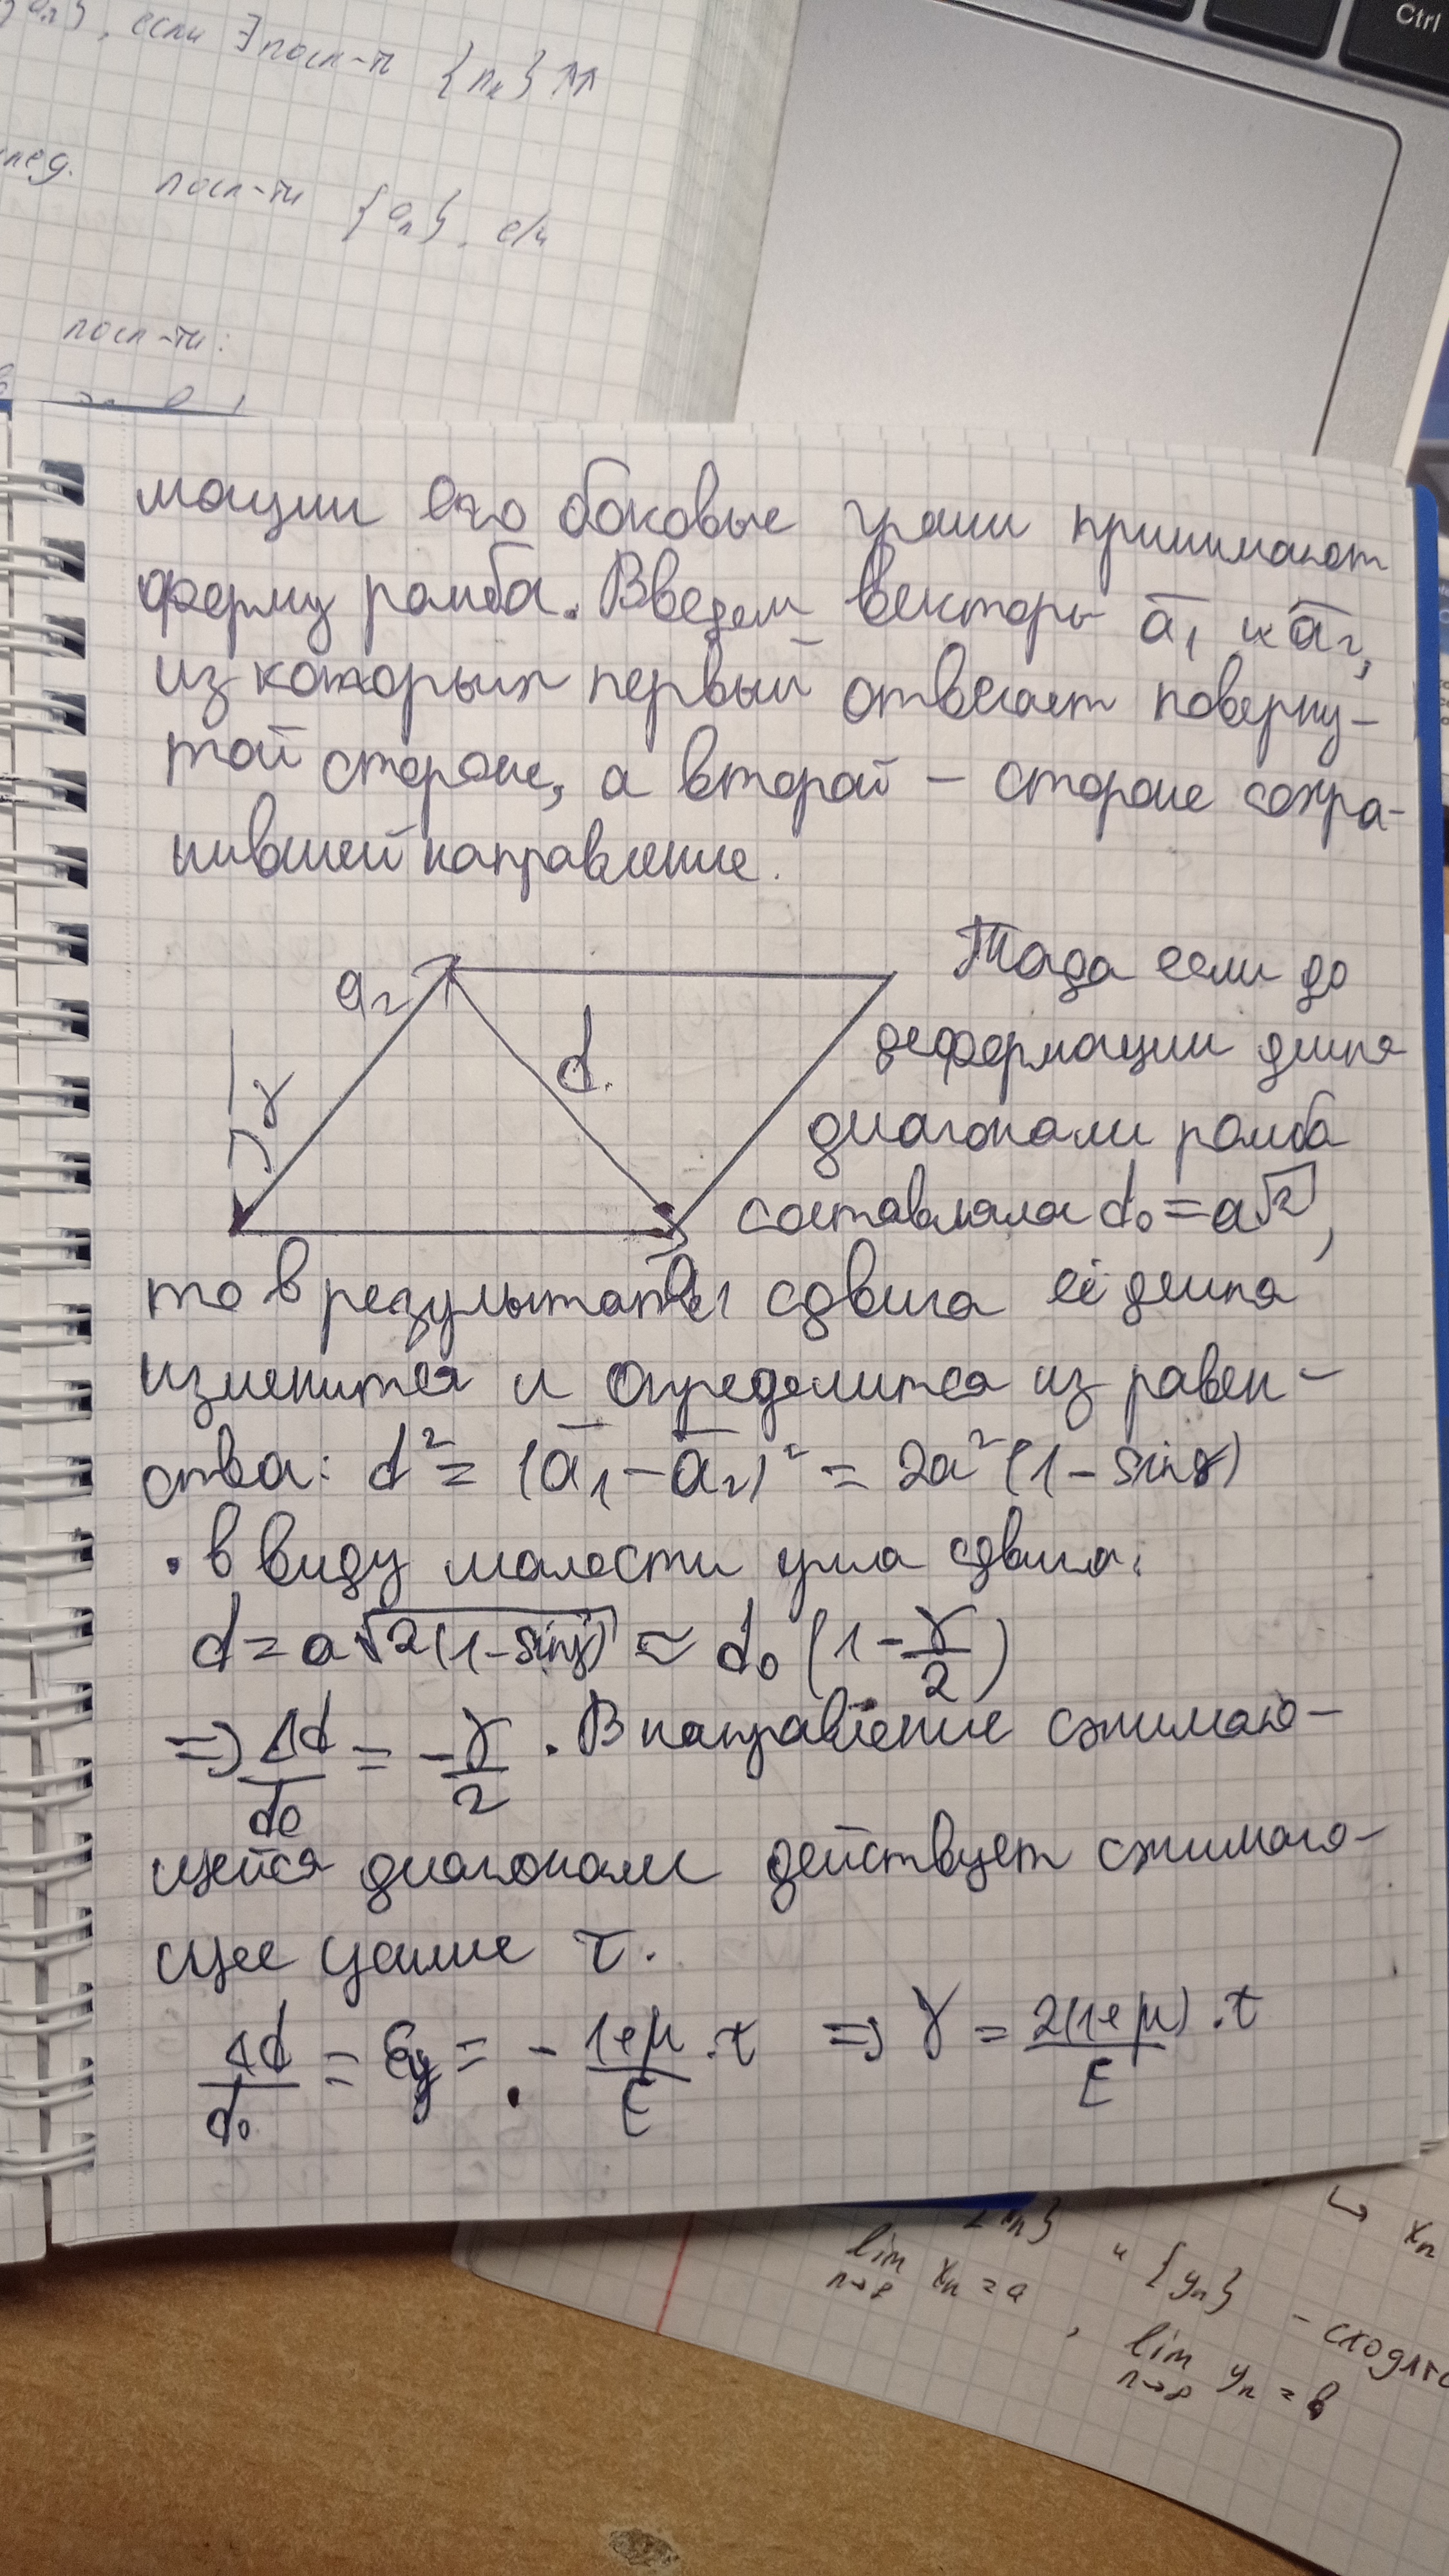 , если ∃ посл-ть {nₖ}↑↑
посл-ти {aₙ}, е/и
посл-ти:
Ctrl
мации его боковые грани принимают
форму ромба. Введем векторы a̅₁ и a̅₂,
из которых первый отвечает поверну-
той стороне, а второй – стороне сохра-
нившей направление.
a₂
d
γ
Тогда если до
деформации длина
диагонали ромба
составляла d₀ = a√2,
то в результате сдвига её длина
изменится и определится из равен-
ства: d² = (a̅₁ - a̅₂)² = 2a²(1 - sinγ)
. в виду малости угла сдвига:
d = a√2(1-sinγ) ≈ d₀(1 - γ/2)
=> Δd/d₀ = -γ/2 . В направление сжимаю-
щейся диагонали действует сжимаю-
щее усилие τ.
Δd/d₀ = εy = - 1+μ/E · τ => γ = 2(1+μ)/E · τ
↳ xₙ
и {yₙ} - сходятс
lim n→∞ xₙ = a , lim n→∞ yₙ = b